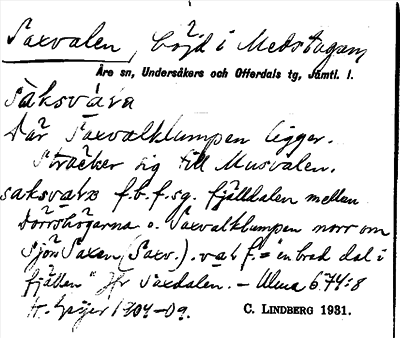 Saxvalen, höjd i Medstugan
Åre sn, Undersåkers och Offerdals tg, Jämtl. l.
saksvára
Där Saxvalklumpen ligger.
Sträcker sig till Musvalen.
saksvara f.b.f.sg. fjälldalen mellan
Dörrshögarna o. Saxvalklumpen norr om
sjön Saxen (Saxv.). val f. = "en bred dal i
fjällen" Jfr Saxdalen. – Ulma 674:8
H. Geijer 1904-09.
C. LINDBERG 1931.